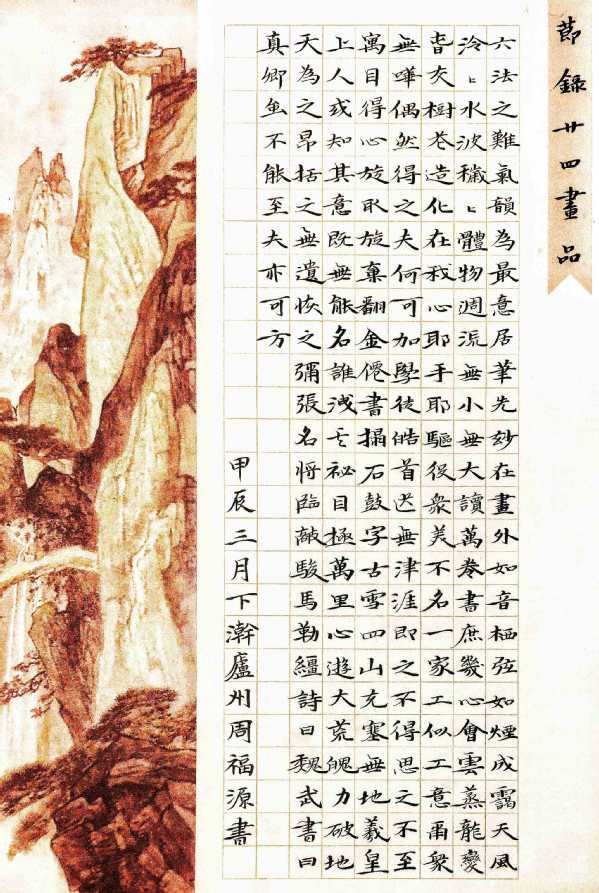 節錄廿四畫品
六法之難氣韻為最意居筆先妙在畫外如音栖弦如煙成靄天風
泠〻水波穢〻體物週流無小無大讀萬卷書庶幾心會雲蒸龍變
春交樹花造化在我心耶手耶驅役衆美不名一家工似工意爾衆
無嘩偶然得之夫何可加學徒皓首茫無津涯即之不得思之不至
寓目得心旋取旋棄翻金僊書搨石鼓字古雪四山充塞無地羲皇
上人或知其意既無能名誰洩其祕目極萬里心遊大荒魄力破地
天為之昂括之無遺恢之彌張名將臨敵駿馬勒繮詩曰魏武書曰
真卿虽不能至夫亦可方
甲辰三月下澣廬州周福源書